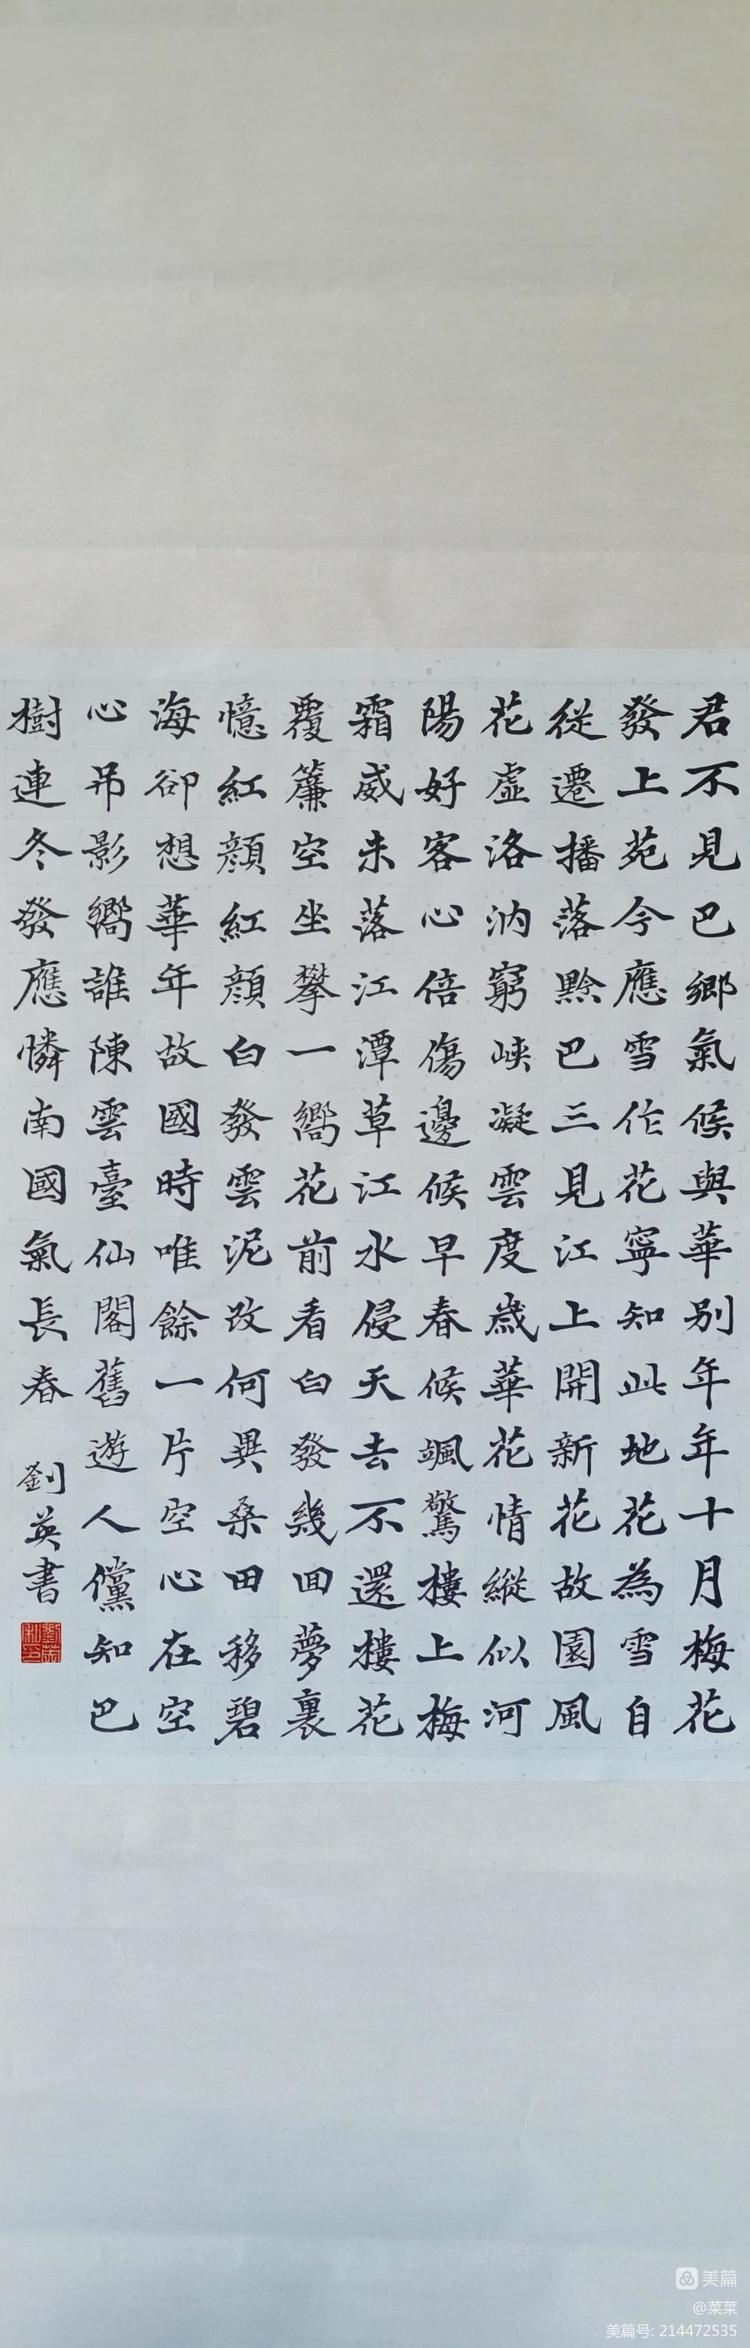 君不見巴鄉氣候與華別年年十月梅花
發上苑今應雪作花寧知此地花為雪自
從遷播落黔巴三見江上開新花故園風
花虛洛汭窮峽凝雲度歲華花情縱似河
陽好客心倍傷邊候早春候颯驚樓上梅
霜威未落江潭草江水侵天去不還樓花
覆簾空坐攀一嚮花前看白發幾回夢裏
憶紅顏紅顏白發雲泥改何異桑田移碧
海卻想華年故國時唯餘一片空心在空
心吊影嚮誰陳雲臺仙閣舊遊人儻知巴
樹連冬發應憐南國氣長春
劉英書
美篇
@菜菜
美篇号: 214472535